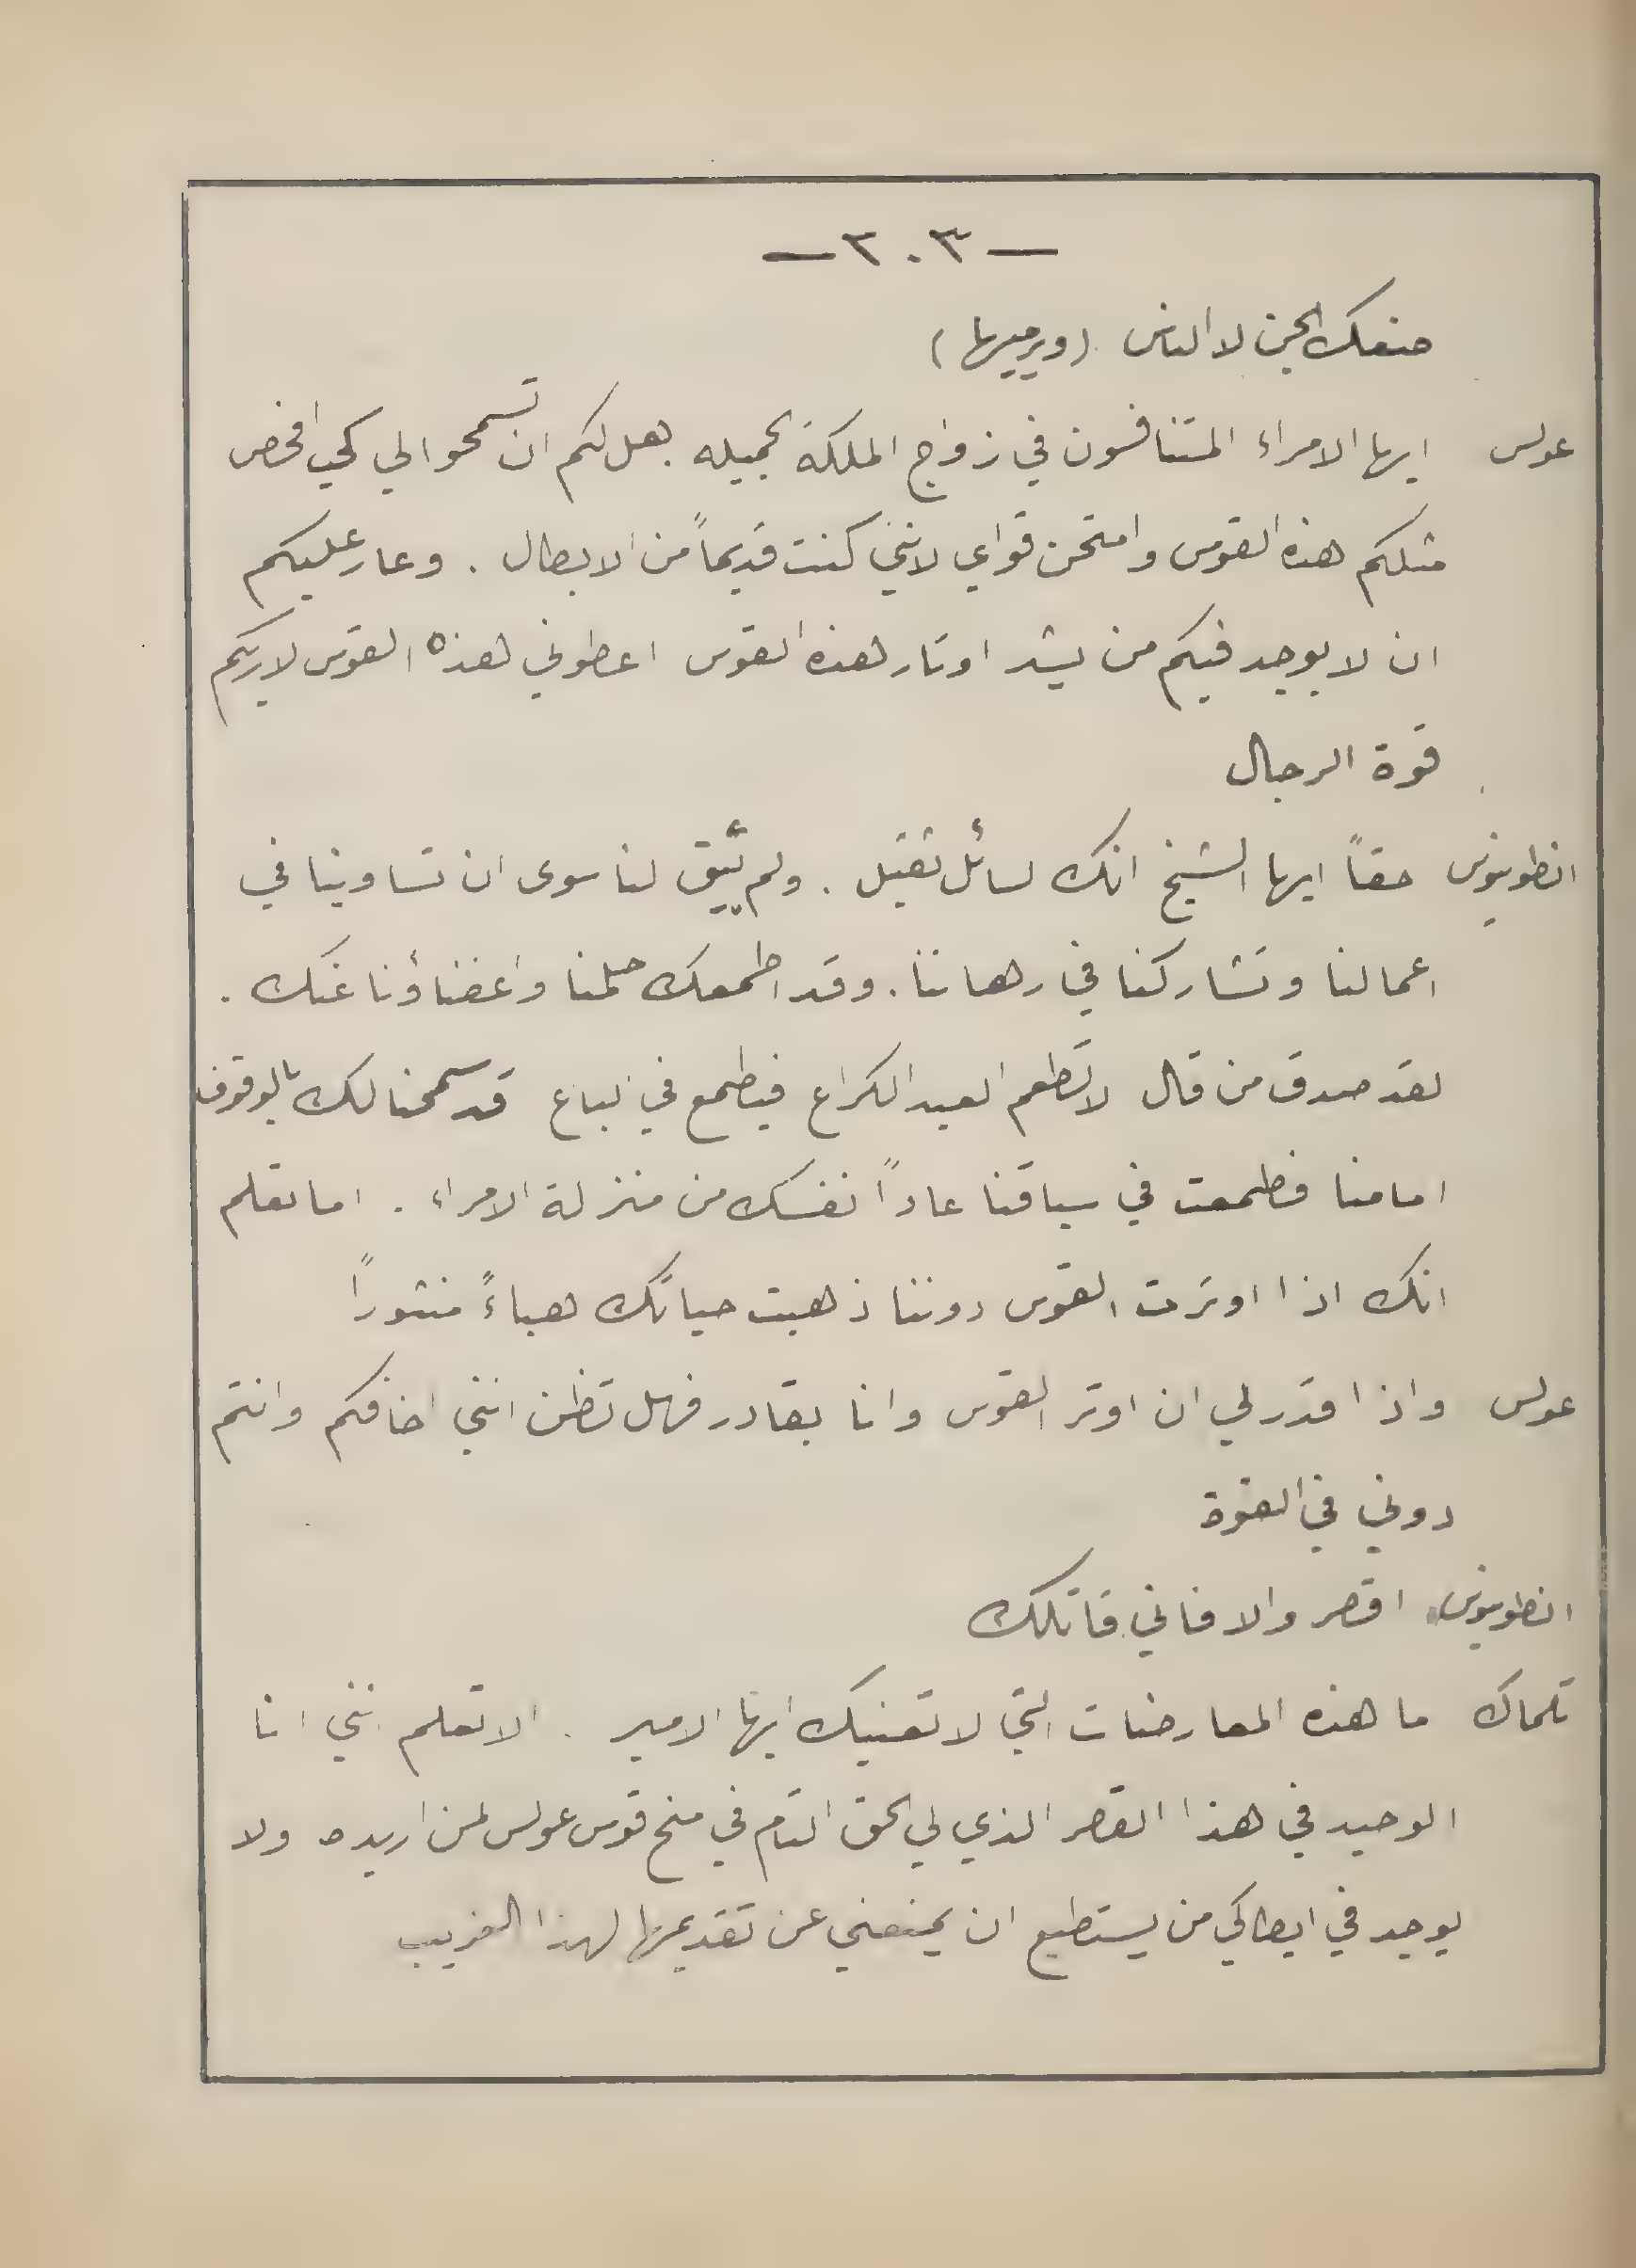 — ٣٠٢ —
صنعك الجن لا الناس (ويرميها)
عولس ايها الامراء المتنافسون في زواج الملكة الجميله هل لكم ان تسمحوا لي كي افحص
مثلكم هذه القوس وامتحن قواي لانني كنت قديماً من الابطال . وعار عليكم
ان لا يوجد فيكم من يشد اوتار هذه القوس اعطوني هذه القوس لاريكم
قوة الرجال
انطونيوس حقاً ايها الشيخ انك لسائل ثقيل . ولم يبق لنا سوى ان تساوينا في
اعمالنا وتشاركنا في رهاننا . وقد اطمعك حلمنا واغضاؤنا عنك .
لقد صدق من قال لا تطعم العبد الكراع فيطمع في الباع قد سمحنا لك بالوقوف
امامنا فطمعت في سباقنا عاداً نفسك من منزلة الامراء . اما تعلم
انك اذا اوترت القوس دوننا ذهبت حياتك هباءً منثوراً
عولس واذا قدر لي ان اوتر القوس وانا بقادر فهل تظن انني اخافكم وانتم
دوني في القوة
انطونيوس اقصر والا فاني قاتلك
تلماك ما هذه المعارضات التي لا تعنيك ايها الامير . الا تعلم انني انا
الوحيد في هذا القصر الذي لي الحق التام في منح قوس عولس لمن اريده ولا
يوجد في ايطاكي من يستطيع ان يمنعني عن تقديمها لهذا الغريب